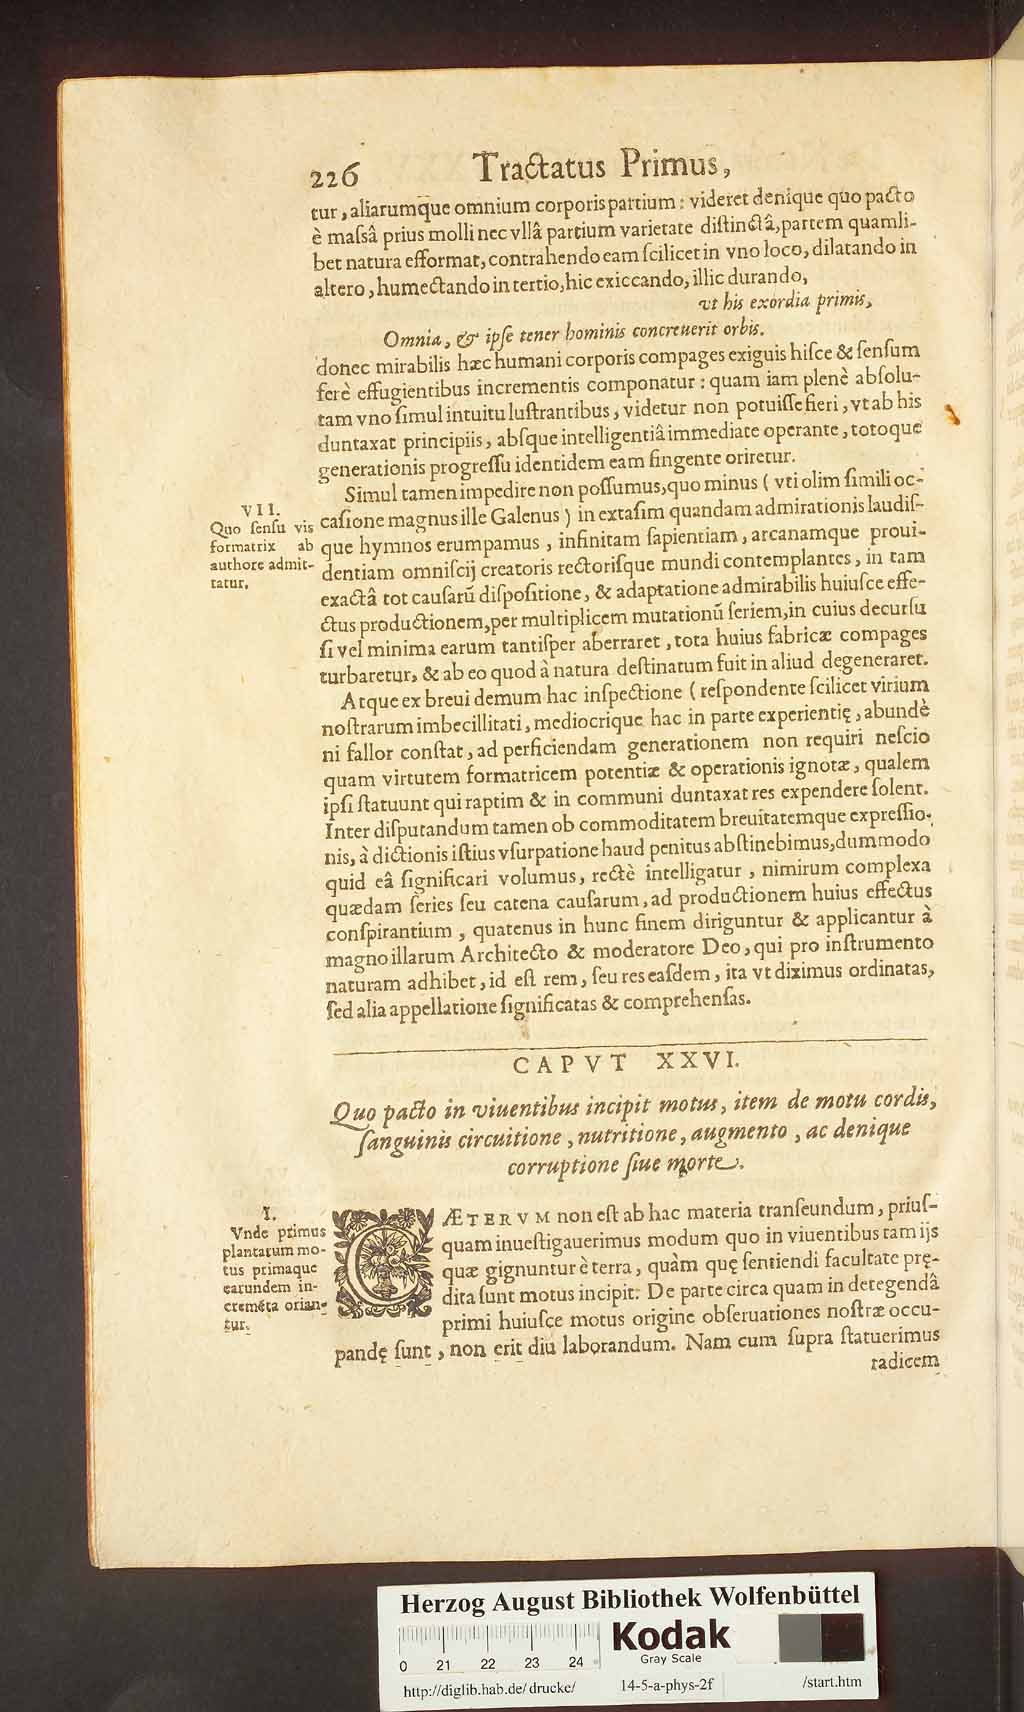 226 Tractatus Primus,
tur, aliarumque omnium corporis partium: videret denique quo pacto
è maſsâ prius molli nec vllâ partium varietate diſtinctâ, partem quamli-
bet natura efformat, contrahendo eam ſcilicet in vno loco, dilatando in
altero, humectando in tertio, hic exiccando, illic durando,
vt his exordia primis,
Omnia, & ipſe tener hominis concreuerit orbis.
donec mirabilis hæc humani corporis compages exiguis hiſce & ſenſum
ferè effugientibus incrementis componatur: quam iam plenè abſolu-
tam vno ſimul intuitu luſtrantibus, videtur non potuiſſe fieri, vt ab his
duntaxat principiis, abſque intelligentiâ immediate operante, totoque
generationis progreſſu identidem eam fingente oriretur.
VII.
Quo ſenſu vis
formatrix ab
authore admit-
tatur.
Simul tamen impedire non poſſumus, quo minus (vti olim ſimili oc-
caſione magnus ille Galenus) in extaſim quandam admirationis laudiſ-
que hymnos erumpamus, infinitam ſapientiam, arcanamque proui-
dentiam omniſcij creatoris rectoriſque mundi contemplantes, in tam
exactâ tot cauſarũ diſpoſitione, & adaptatione admirabilis huiuſce effe-
ctus productionem, per multiplicem mutationũ ſeriem, in cuius decurſu
ſi vel minima earum tantiſper aberraret, tota huius fabricæ compages
turbaretur, & ab eo quod à natura deſtinatum fuit in aliud degeneraret.
Atque ex breui demum hac inſpectione (reſpondente ſcilicet virium
noſtrarum imbecillitati, mediocrique hac in parte experientię, abundè
ni fallor conſtat, ad perficiendam generationem non requiri neſcio
quam virtutem formatricem potentiæ & operationis ignotæ, qualem
ipſi ſtatuunt qui raptim & in communi duntaxat res expendere ſolent.
Inter diſputandum tamen ob commoditatem breuitatemque expreſſio-
nis, à dictionis iſtius vſurpatione haud penitus abſtinebimus, dummodo
quid eâ ſignificari volumus, rectè intelligatur, nimirum complexa
quædam ſeries ſeu catena cauſarum, ad productionem huius effectus
conſpirantium, quatenus in hunc finem diriguntur & applicantur à
magno illarum Architecto & moderatore Deo, qui pro inſtrumento
naturam adhibet, id eſt rem, ſeu res eaſdem, ita vt diximus ordinatas,
ſed alia appellatione ſignificatas & comprehenſas.
CAPVT XXVI.
Quo pacto in viuentibus incipit motus, item de motu cordis,
ſanguinis circuitione, nutritione, augmento, ac denique
corruptione ſiue morte.
I.
Vnde primus
plantarum mo-
tus primaque
earundem in-
cremẽta orian-
tur.
CÆTERVM non eſt ab hac materia tranſeundum, priuſ-
quam inueſtigauerimus modum quo in viuentibus tam ijs
quæ gignuntur è terra, quàm quę ſentiendi facultate prę-
dita ſunt motus incipit. De parte circa quam in detegendâ
primi huiuſce motus origine obſeruationes noſtræ occu-
pandę ſunt, non erit diu laborandum. Nam cum ſupra ſtatuerimus
radicem
Herzog August Bibliothek Wolfenbüttel
Kodak
Gray Scale
0 21 22 23 24
http://diglib.hab.de/drucke/ 14-5-a-phys-2f /start.htm